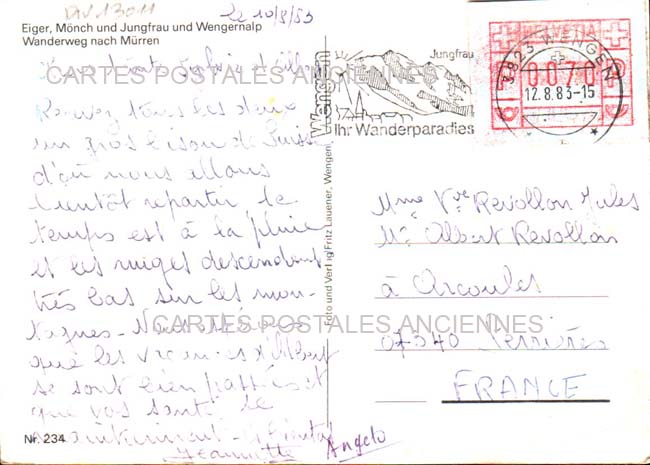 DIV 13011
Le 10/8/83
Eiger, Mönch und Jungfrau und Wengernalp
Wanderweg nach Mürren
CARTES POSTALES ANCIENNES
Recevez tous les deux
un gros bison de Suisse
d'où nous allons
bientôt repartir le
temps est à la pluie
et les nuages descendent
très bas sur les mon-
tagnes - Nous
que les d'Albert
se sont bien passées et
que vos santé se
maintiennent
Jeannette Angelo
Nr. 234
Foto und Verlag Fritz Lauener, Wengen
Wengen
Jungfrau
Ihr Wanderparadies
HELVETIA
0070
3823 WENGEN
12.8.83-15
Mme Vve Revollon Jules
Mr Albert Revollon
à Arcoules
07340 Serrières
FRANCE
CARTES POSTALES ANCIENNES